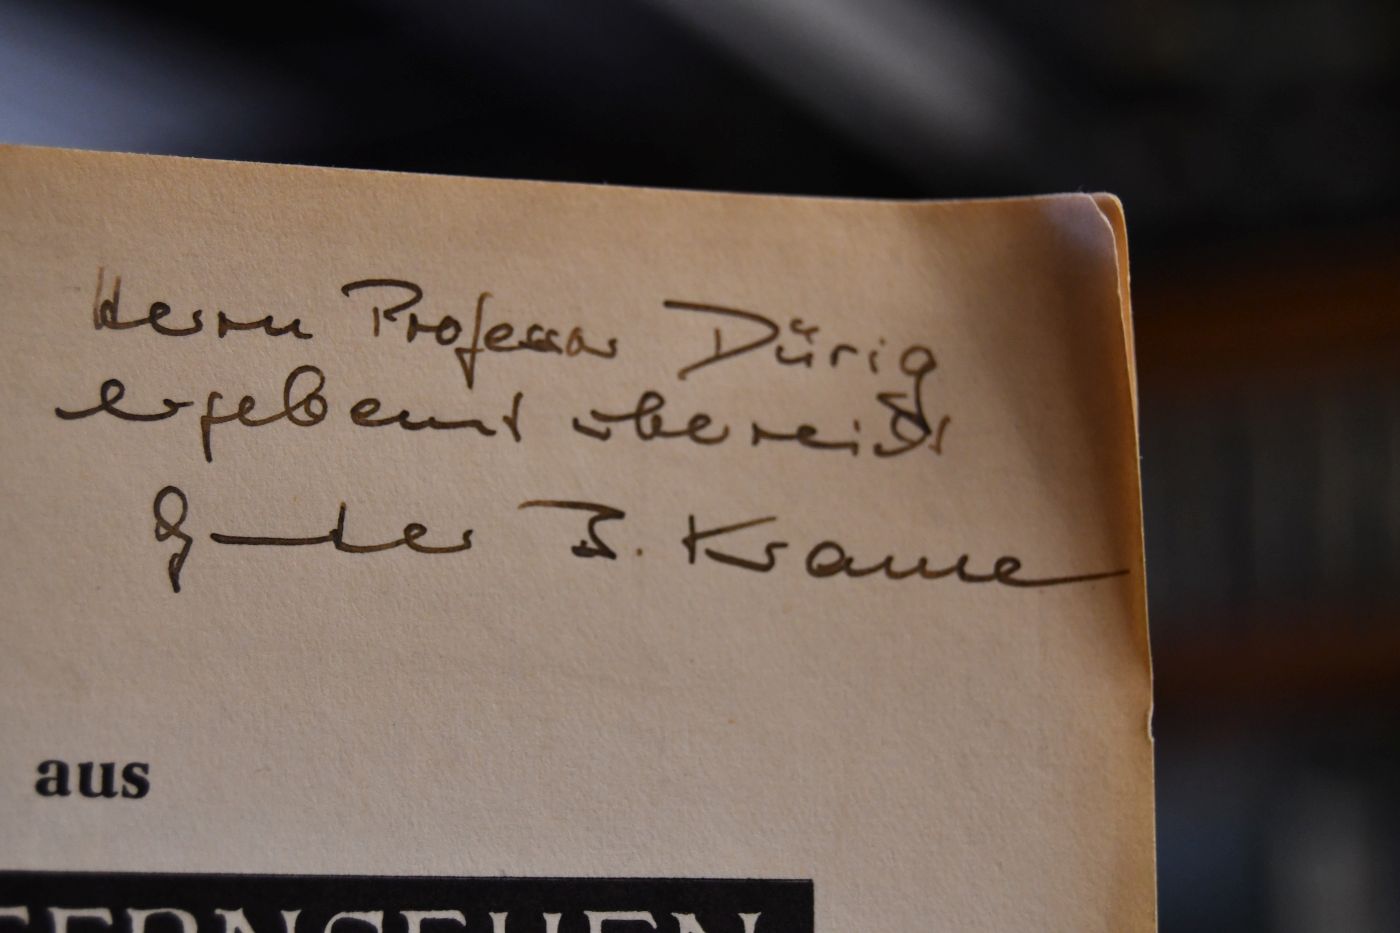 Herrn Professor Dürig
ergebenst überreicht
Gunter B. Krause
aus
FERNSEHEN